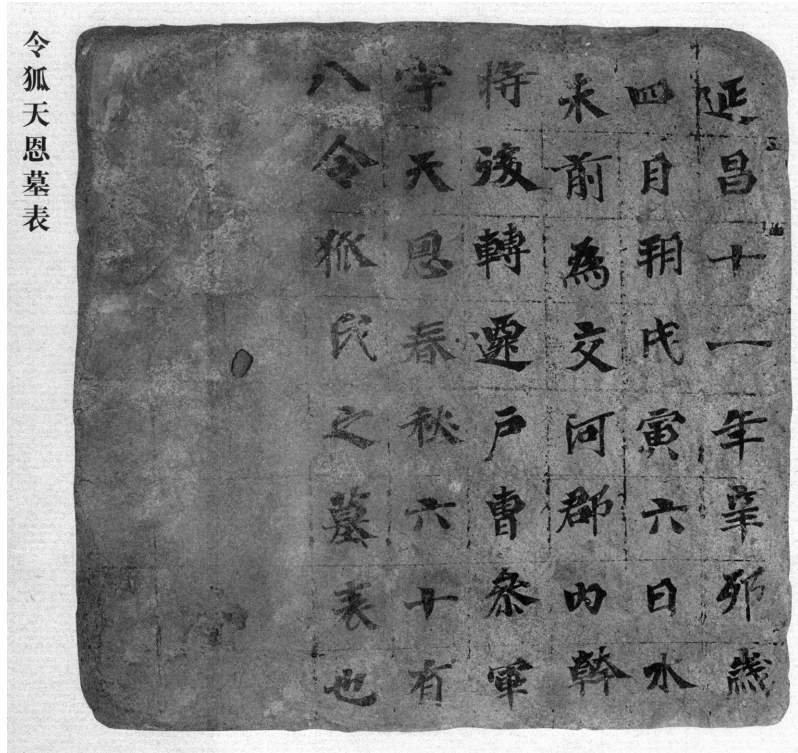 延昌十一年辛卯歲
四月朔戊寅六日水
未前為交河郡內幹
將後轉遷戶曹參軍
字天恩春秋六十有
八令狐氏之墓表也
令狐天恩墓表